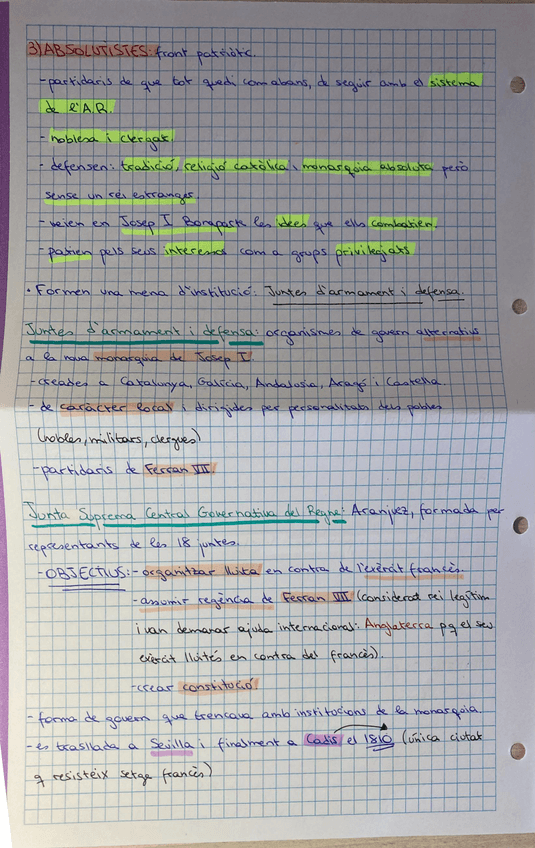 3) ABSOLUTISTES: front patriòtic.
- partidaris de que tot quedi com abans, de seguir amb el sistema
de l'A.R.
- noblesa i clergat.
- defensen: tradició, religió catòlica i monarquia absoluta però
sense un rei estranger.
- veien en Josep I Bonaparte les idees que ells combatien.
- patien pels seus interessos com a grups privilegiats
• Formen una mena d'institució: Juntes d'armament i defensa.
Juntes d'armament i defensa: organismes de govern alternatius
a la nova monarquia de Josep I.
- creades a Catalunya, Galícia, Andalusia, Aragó i Castella.
- de caràcter local i dirigides per personalitats dels pobles
(nobles, militars, clergues)
- partidaris de Ferran VII.
Junta Suprema Central Governativa del Regne: Aranjuez, formada per
representants de les 18 juntes.
- OBJECTIUS: - organitzar lluita en contra de l'exèrcit francès.
- assumir regència de Ferran VII (considerat rei legítim
i van demanar ajuda internacional: Anglaterra pq el seu
exèrcit lluités en contra del francès).
- crear constitució.
- forma de govern que trencava amb institucions de la monarquia.
- es trasllada a Sevilla i finalment a Cadis el 1810 (única ciutat
q resisteix setge francès)